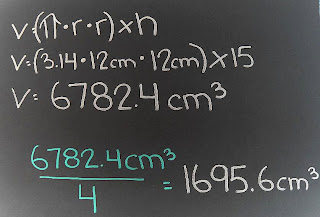 V=(π·r·r)×h
V=(3.14·12cm·12cm)×15
V= 6782.4 cm³
6782.4cm³
4
= 1695.6cm³